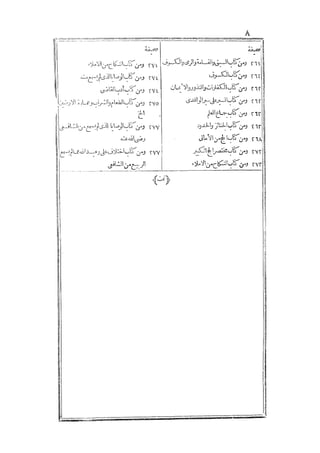 ٨
صحيفة
٢٦١ ومن كتاب السبق والقسامة والرمي والكسوف
٢٦٢ ومن كتاب الكسوف
٢٦٢ ومن كتاب الكفارات والنذور والايمان
٢٦٢ ومن كتاب السير على سير الواقدى
٢٦٣ ومن كتاب جماع العلم
٢٦٣ ومن كتاب الجنائز والحدود
٢٦٨ ومن كتاب الحج من الأمالى
٢٧٢ ومن كتاب مختصر الحج الكبير
٢٧٣ ومن كتاب النكاح من الاملاء
صحيفة
٢٧٤ ومن كتاب الوصايا الذى لم يسمع منه
٢٧٤ ومن كتاب أدب القاضى
٢٧٥ ومن كتاب الطعام والشراب وعمارة الارضين
الخ
٢٧٦ ومن كتاب الوصايا الذى لم يسمع من الشافعى
رضى الله عنه
٢٧٧ ومن كتاب اختلاف على وعبد الله مما لم يسمع
الربيع من الشافعى
(تمت)